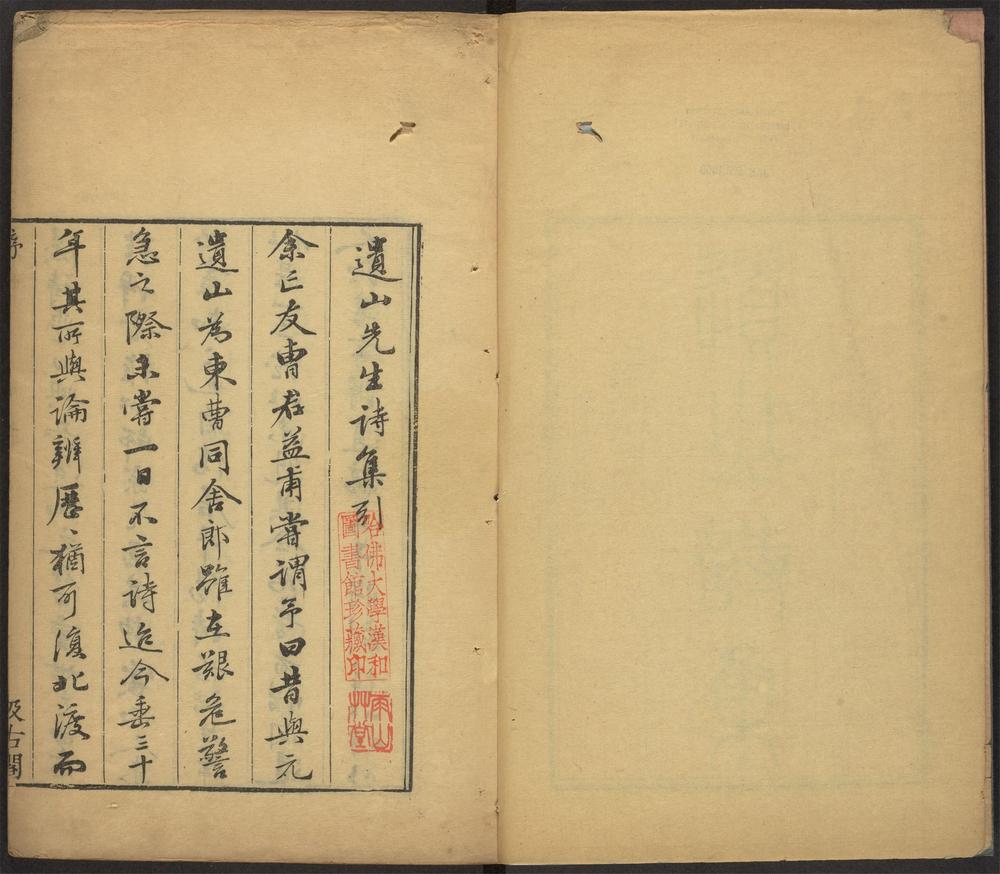 遺山先生詩集引
余亡友曹君益甫嘗謂予曰昔與元
遺山為東曹同舍郎雖在艱危警
急之際未嘗一日不言詩迨今垂三十
年其所與論辨歷〻猶可復北渡而
序
汲古閣
哈佛大學漢和
圖書館珍藏印
南山
艸堂